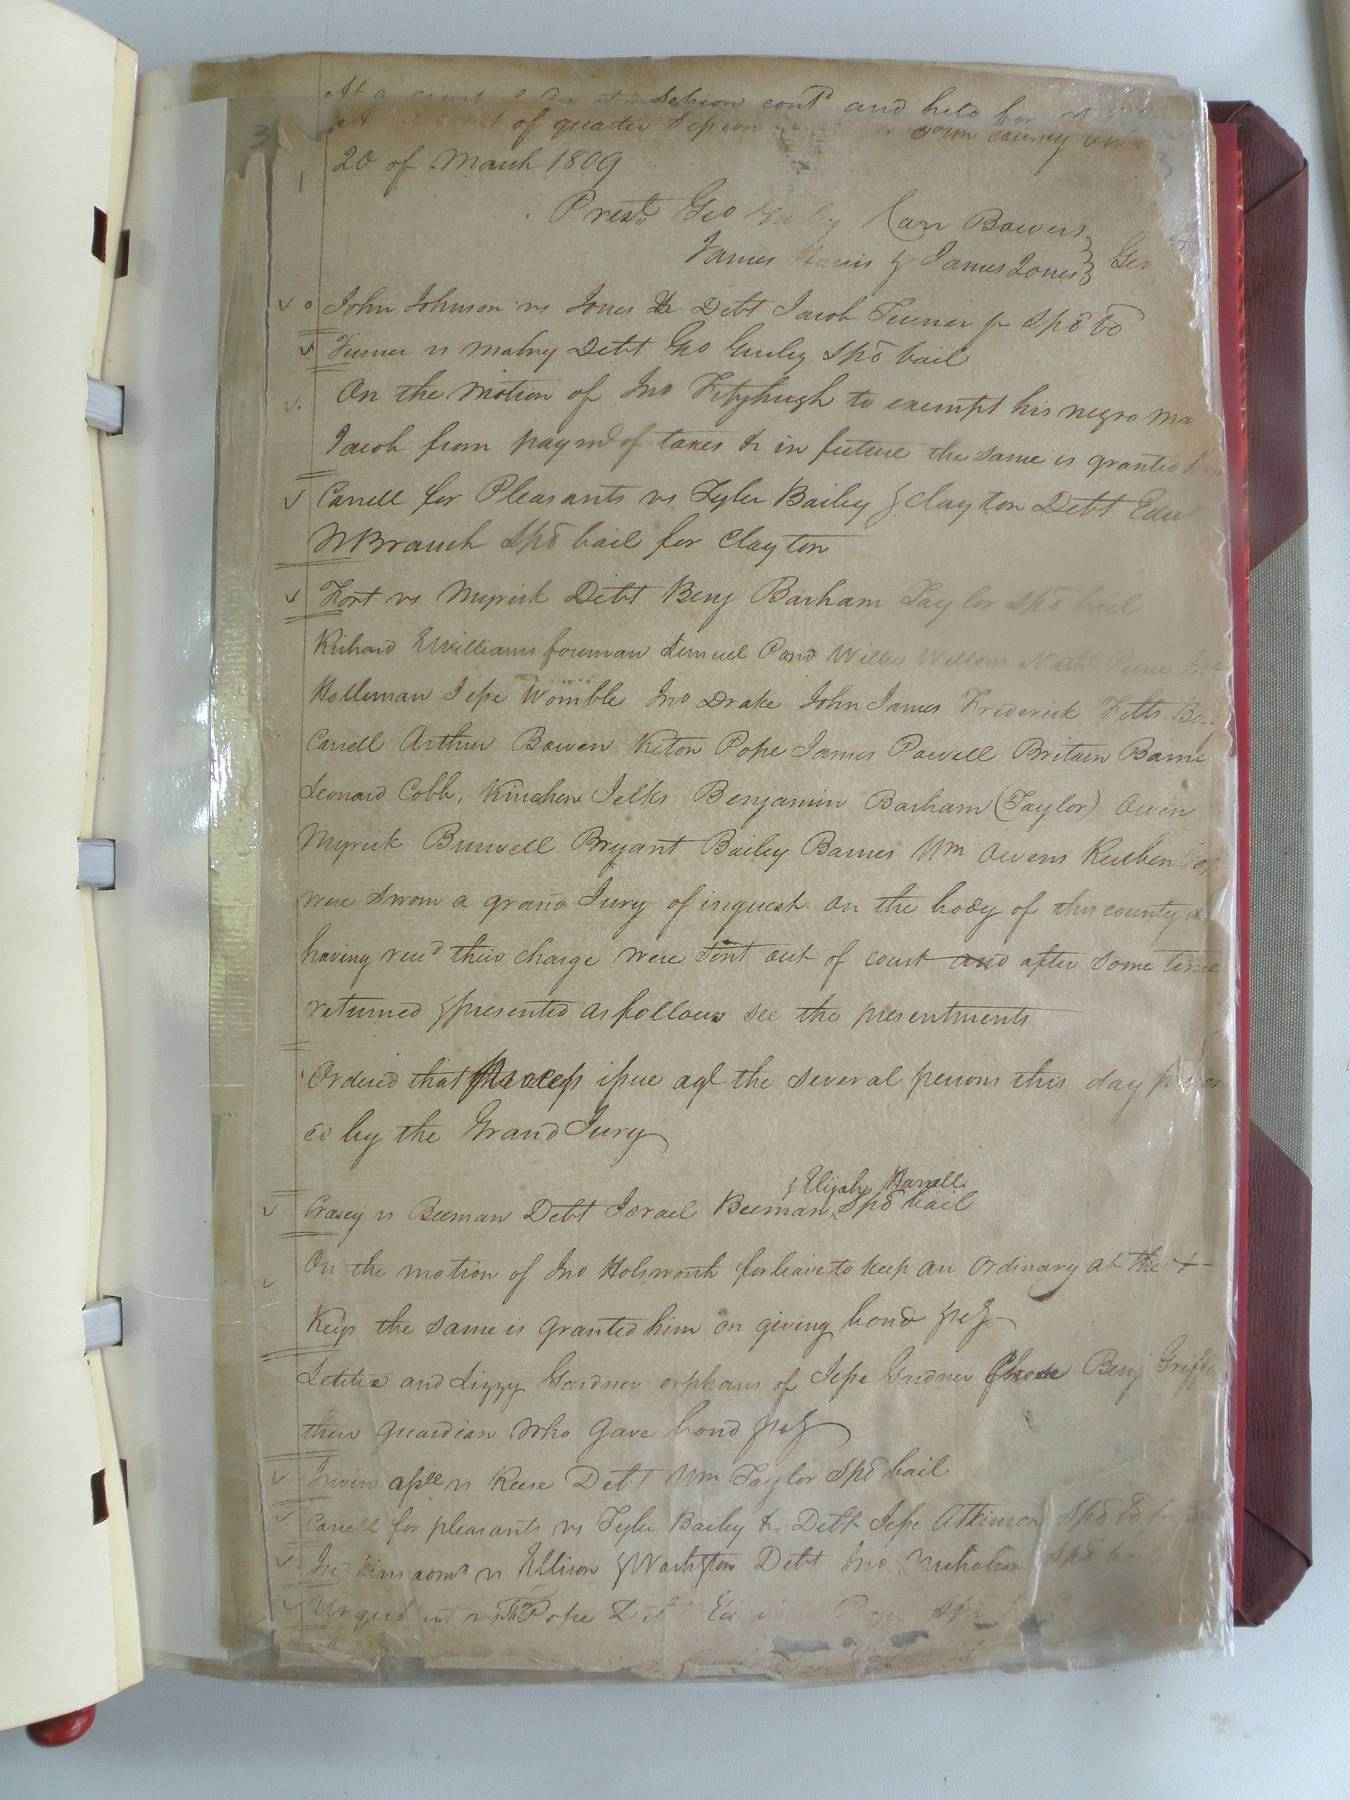 At a court session contd and held for
of quarter Session county
20 of March 1809
Prest Geo Gurley Carr Bowers
James Harris & James Jones Gen
John Johnson vs Jones &c Debt Jacob Turner jr Spo bo
Turner vs Mabry Debt Geo Gurley Spo bail
On the motion of Jno Fitzhugh to exempt his negro ma
Jacob from paymt of taxes &c in future the same is granted
Carrell for Pleasants vs Tyler Bailey & Clayton Debt Edw
W Branch Spo bail for Clayton
Fort vs Myrick Debt Benj Barham Taylor Spo bail
Richard E Williams foreman Lemuel Pond Willie Wellons Nathl
Holleman Jesse Womble Jno Drake John James Frederick Felts
Carrell Arthur Bowen Keton Pope James Powell Britain Barne
Leonard Cobb, Kinchen Jelks Benjamin Barham (Taylor) Owen
Myrick Burwell Bryant Bailey Barnes Wm Owens Reuben
were sworn a grand Jury of inquest on the body of this county &
having recd their charge were sent out of court and after some time
returned & presented as follows see the presentments
Ordered that Process issue agt the several persons this day
ed by the Grand Jury
& Elijah Harrell
Crasey vs Beeman Debt Israel Beeman Spo bail
On the motion of Jno Holsworth for leave to keep an ordinary at the +
Keys the same is granted him on giving bond &c &
Letitie and Lizzy Gardner orphans of Jesse Gardner Chose Benj
their guardian who gave bond &c &
Irvin assee vs Reese Debt Wm Taylor Spo bail
Carrell for pleasants vs Tyler Bailey &c Debt Jesse Atkinson Spo
vs Ellison & Debt Jno Nicholson Spo
vs Pope